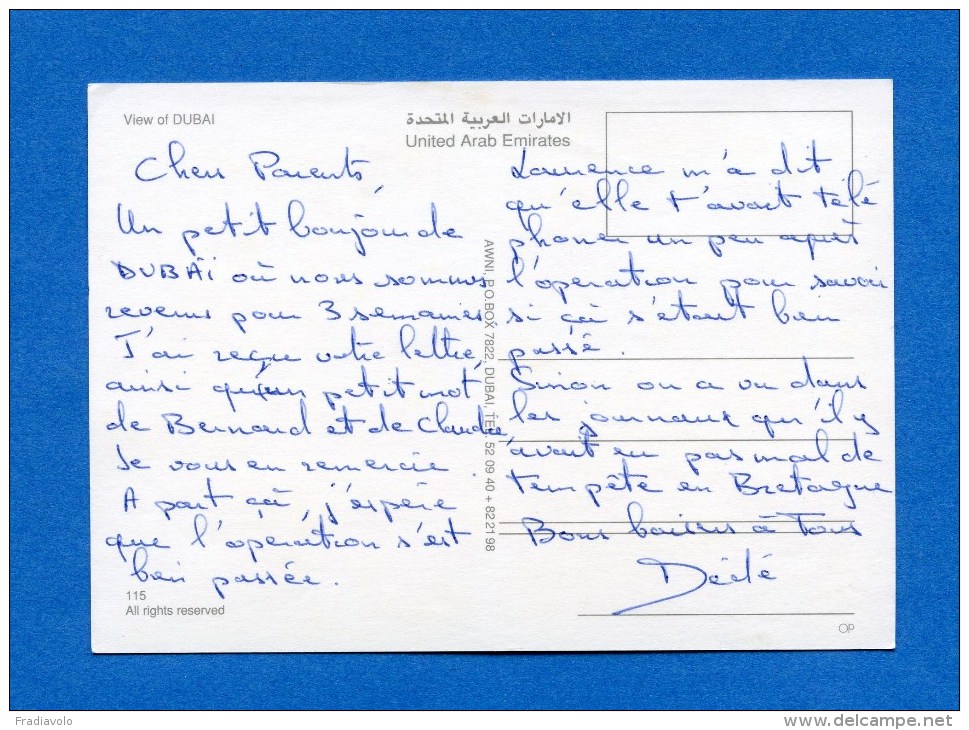 View of DUBAI
الامارات العربية المتحدة
United Arab Emirates
Chers Parents,
Un petit bonjour de
DUBAÏ où nous sommes
revenus pour 3 semaines
J'ai reçu votre lettre,
ainsi qu'un petit mot
de Bernard et de Claudie
Je vous en remercie.
A part çà, j'espère
que l'opération s'est
bien passée.
115
All rights reserved
AWNI, P.O.BOX 7822, DUBAI, TEL. 52 09 40 + 82 21 98
Laurence m'a dit
qu'elle t'avait télé
phoner un peu après
l'opération pour savoir
si çà s'était bien
passé.
Sinon on a vu dans
les journaux qu'il y
avait eu pas mal de
tempête en Bretagne
Bons baisers à Tous
Dédé
OP
Fradiavolo
www.delcampe.net